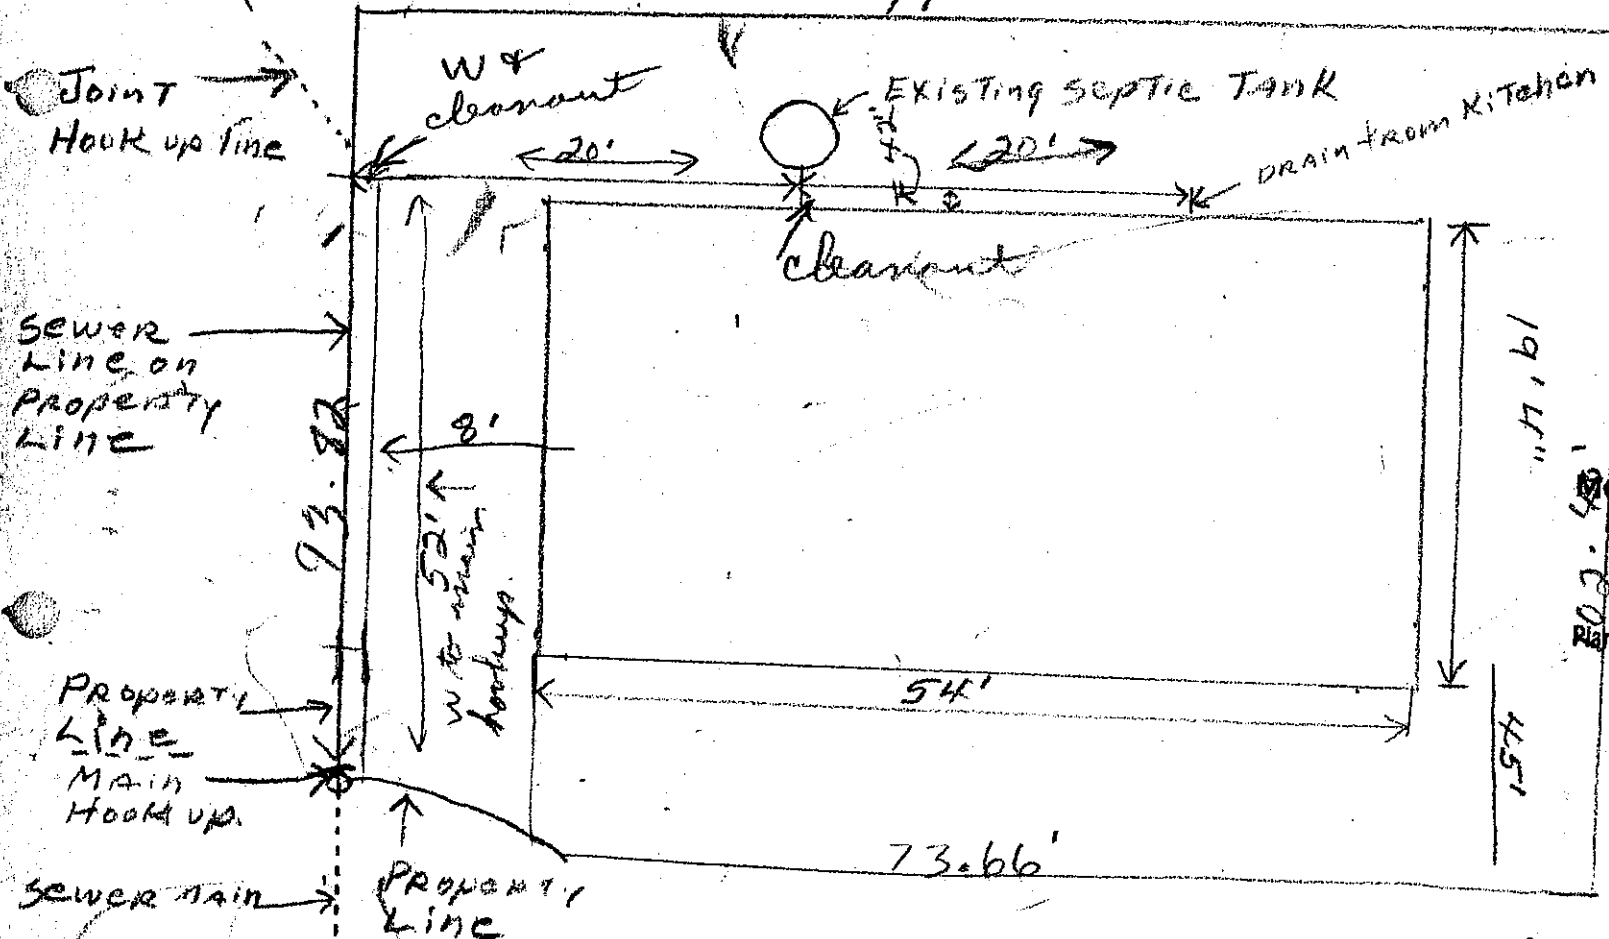 Joint
Hook up line
W &
cleanout
Existing Septic Tank
20'
20'
Drain from Kitchen
cleanout
Sewer
Line on
Property
Line
93.82
8'
52'
W to main
hookup.
19' 4"
54'
45'
Property
Line
Main
Hook up.
Sewer Main
Property
Line
73.66'